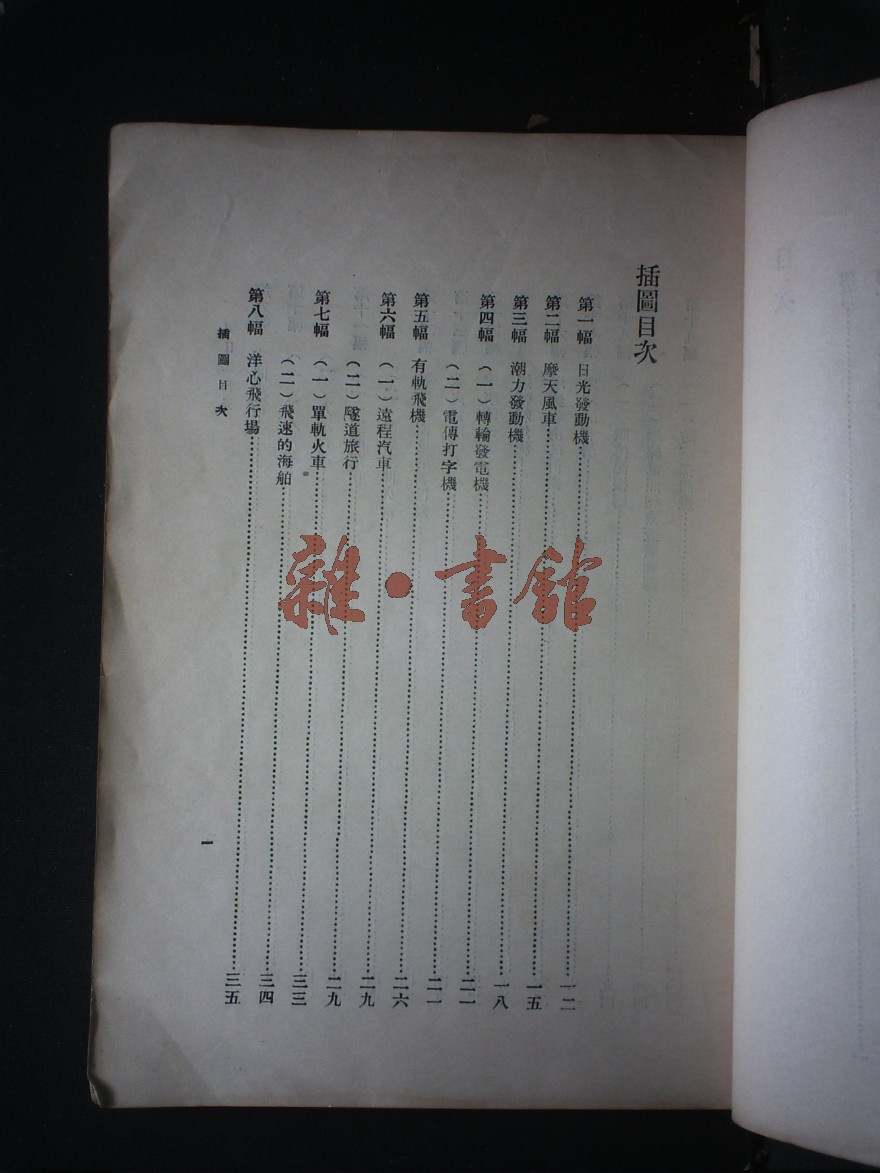 插圖目次
第一幅 日光發動機……一二
第二幅 摩天風車……一五
第三幅 潮力發動機……一八
第四幅 （一）轉輪發電機……二一
（二）電傳打字機……二一
第五幅 有軌飛機……二六
第六幅 （一）遠程汽車……二九
（二）隧道旅行……二九
第七幅 （一）單軌火車……三三
（二）飛速的海船……三四
第八幅 洋心飛行場……三五
插圖目次
一
雜·書館